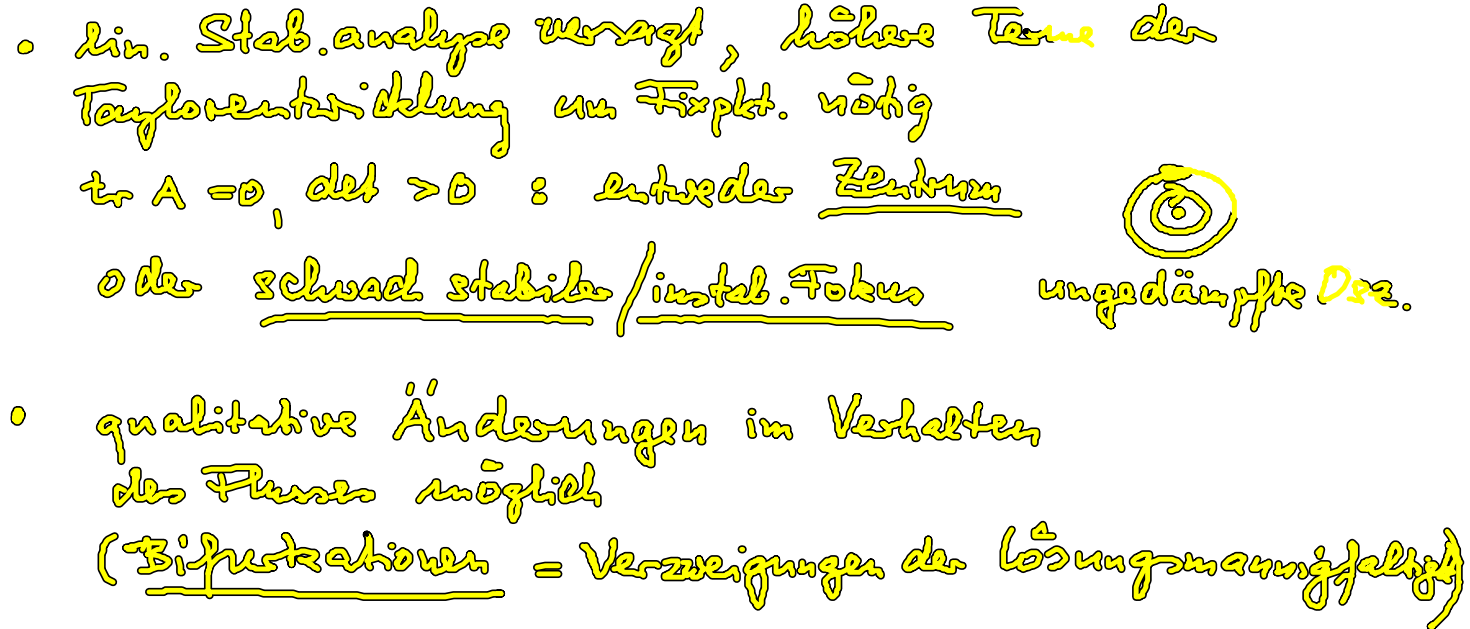 • lin. Stab.analyse versagt, höhere Terme der
Taylorentwicklung um Fixpkt. nötig
tr A = 0, det > 0 : entweder Zentrum
oder schwach stabiler/instab. Fokus ungedämpfte Osz.
• qualitative Änderungen im Verhalten
des Flusses möglich
(Bifurkationen = Verzweigungen der Lösungsmannigfaltigk)